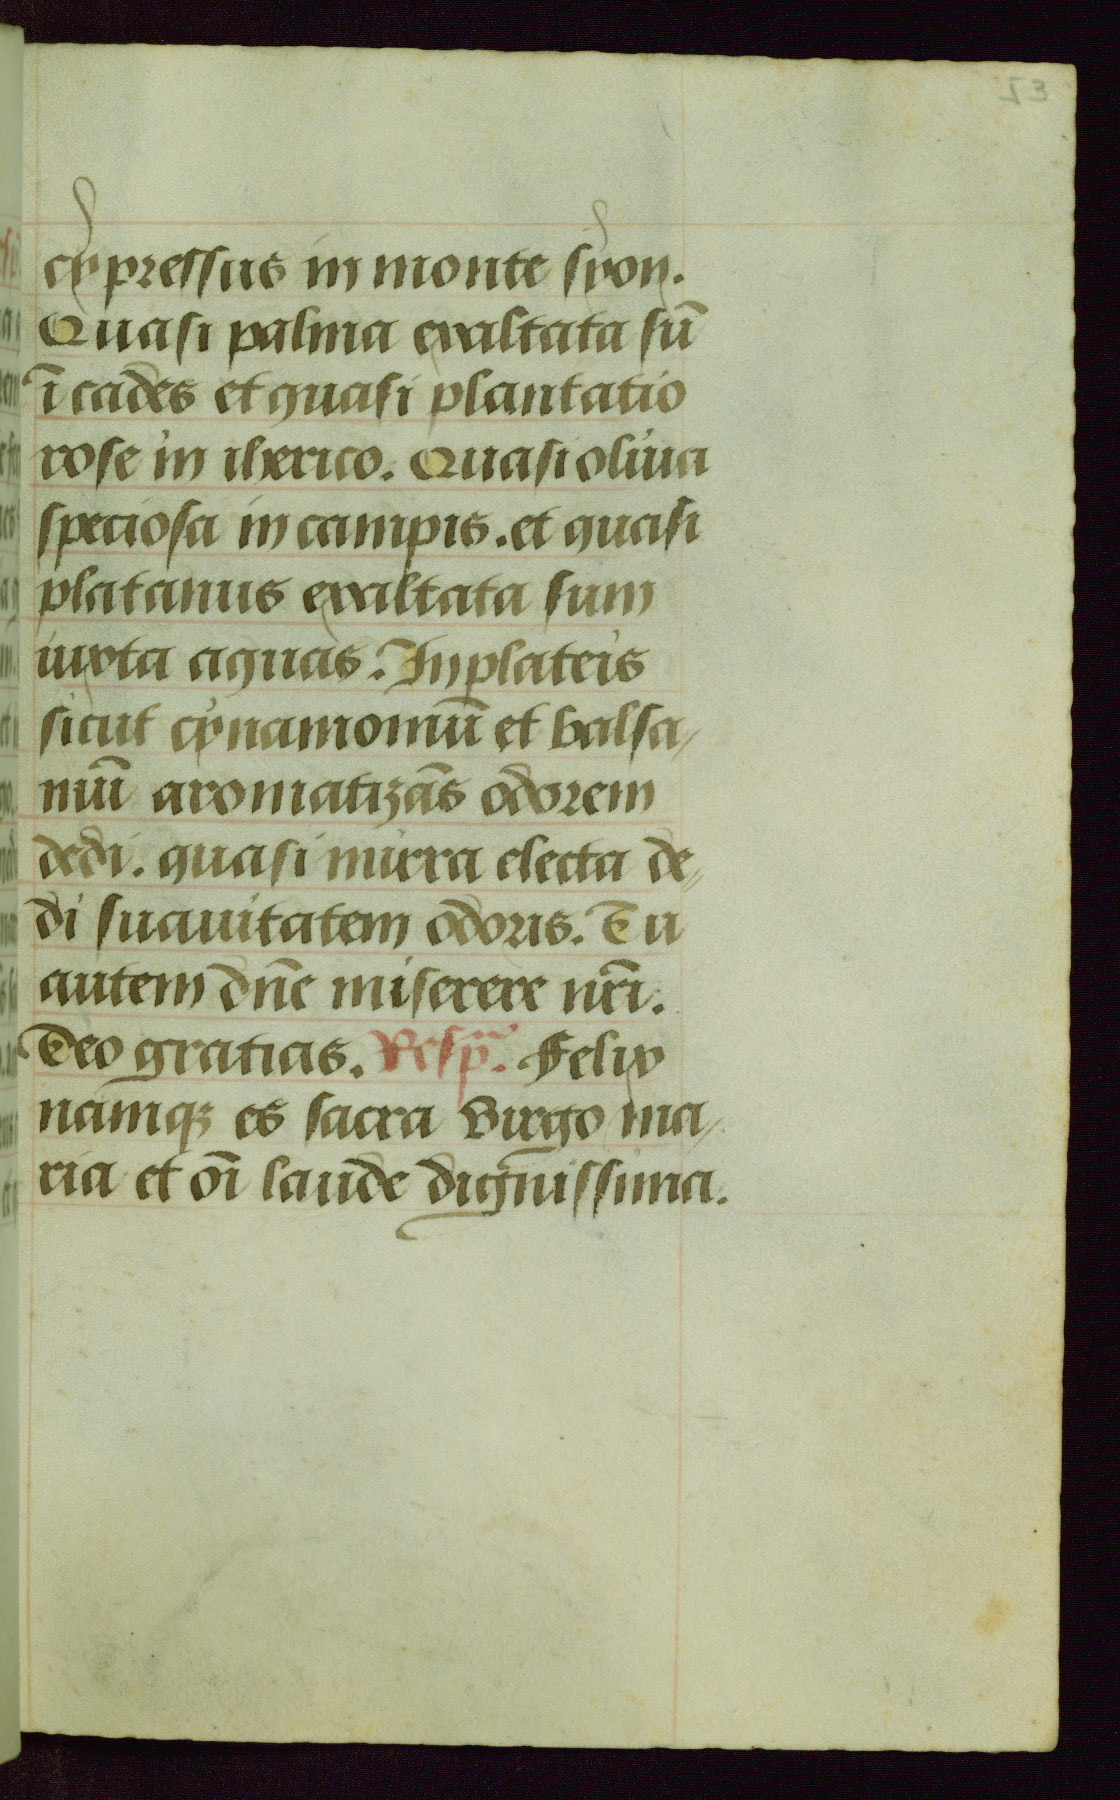 23
cypressus in monte syon.
Quasi palma exaltata sū
ī cades et quasi plantatio
rose in iherico. Quasi oliua
speciosa in campis. et quasi
platanus exaltata sum
iuxta aquas. In plateis
sicut cynamomū et balsa-
mū aromatizās odorem
dedi. quasi mirra electa de-
di suauitatem odoris. Tu
autem dn̄e miserere nr̄i.
Deo gratias. Resp̄. Felix
namqꝫ es sacra Virgo ma-
ria et oī laude dignissima.